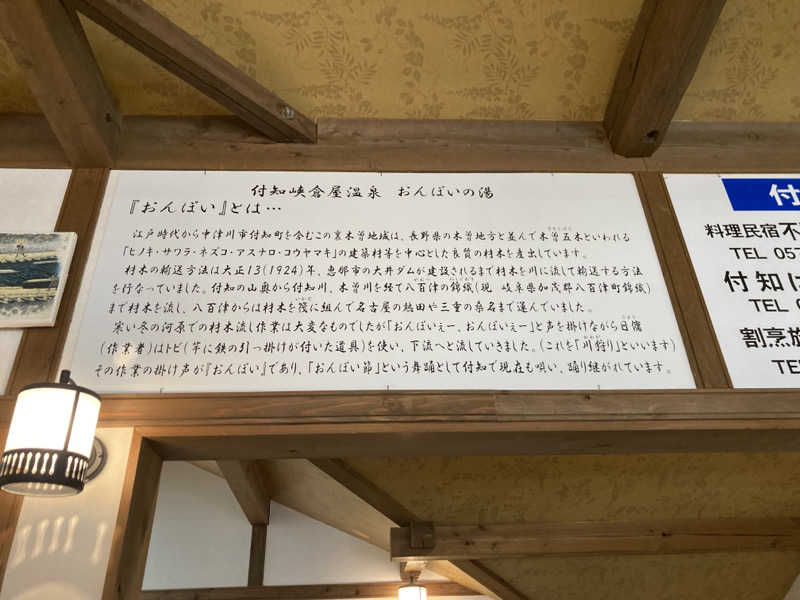 付知峡倉屋温泉 おんぽいの湯
『おんぽい』とは…
江戸時代から中津川市付知町を含むこの裏木曽地域は、長野県の木曽地方と並んで木曽五木といわれる
「ヒノキ・サワラ・ネズコ・アスナロ・コウヤマキ」の建築材等を中心とした良質の材木を産出しています。
材木の輸送方法は大正13(1924)年、恵那市の大井ダムが建設されるまで材木を川に流して輸送する方法
を行なっていました。付知の山奥から付知川、木曽川を経て八百津の錦織(現 岐阜県加茂郡八百津町錦織)
まで材木を流し、八百津からは材木を筏に組んで名古屋の熱田や三重の桑名まで運んでいました。
寒い冬の河原での材木流し作業は大変なものでしたが「おんぽいぇー、おんぽいぇー」と声を掛けながら日傭
(作業者)はトビ(竿に鉄の引っ掛けが付いた道具)を使い、下流へと流していきました。(これを「川狩り」といいます)
その作業の掛け声が『おんぽい』であり、「おんぽい節」という舞踊として付知で現在も唄い、踊り継がれています。
付
料理民宿不
TEL 057
付知は
TEL 0
割烹旅
TEL